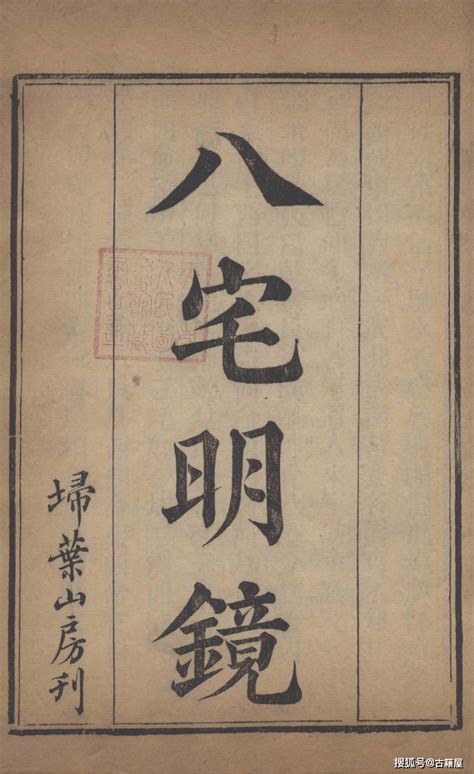 八宅明鏡
埽葉山房刊
搜狐号@古籍屋